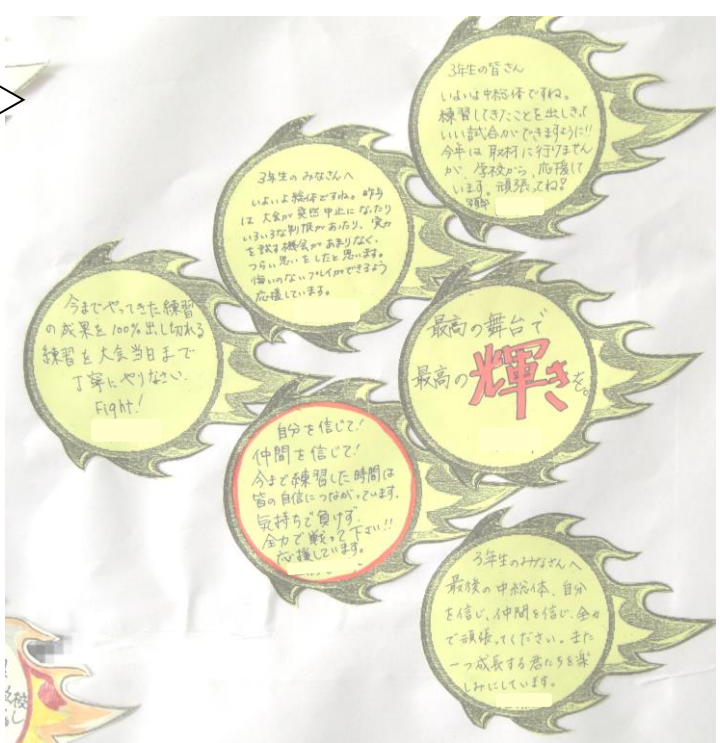 3年生の皆さん
いよいよ中総体ですね。
練習してきたことを出しきって
いい試合ができますように!!
今年は取材に行けません
が、学校から、応援して
います。頑張ってね!
3年生のみなさんへ
いよいよ総体ですね。昨年
は大会が突然中止になったり
いろいろな制限があったり、実力
を試す機会があまりなく、
つらい思いをしたと思います。
悔いのないプレイができるよう
応援しています。
今までやってきた練習
の成果を100%出し切れる
練習を大会当日まで
丁寧にやりなさい.
Fight!
最高の舞台で
最高の輝きを。
自分を信じて!
仲間を信じて!
今まで練習した時間は
皆の自信につながっています.
気持ちで負けず.
全力で戦って下さい!!
応援しています。
3年生のみなさんへ
最後の中総体、自分
を信じ、仲間を信じ、全力
で頑張ってください。また
一つ成長する君たちを楽
しみにしています。
校
し